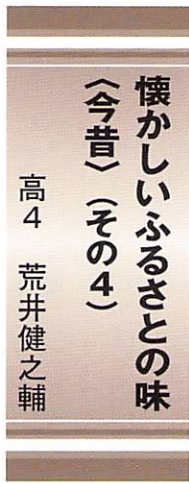 懐かしいふるさとの味
〈今昔〉（その４）
高４　荒井健之輔